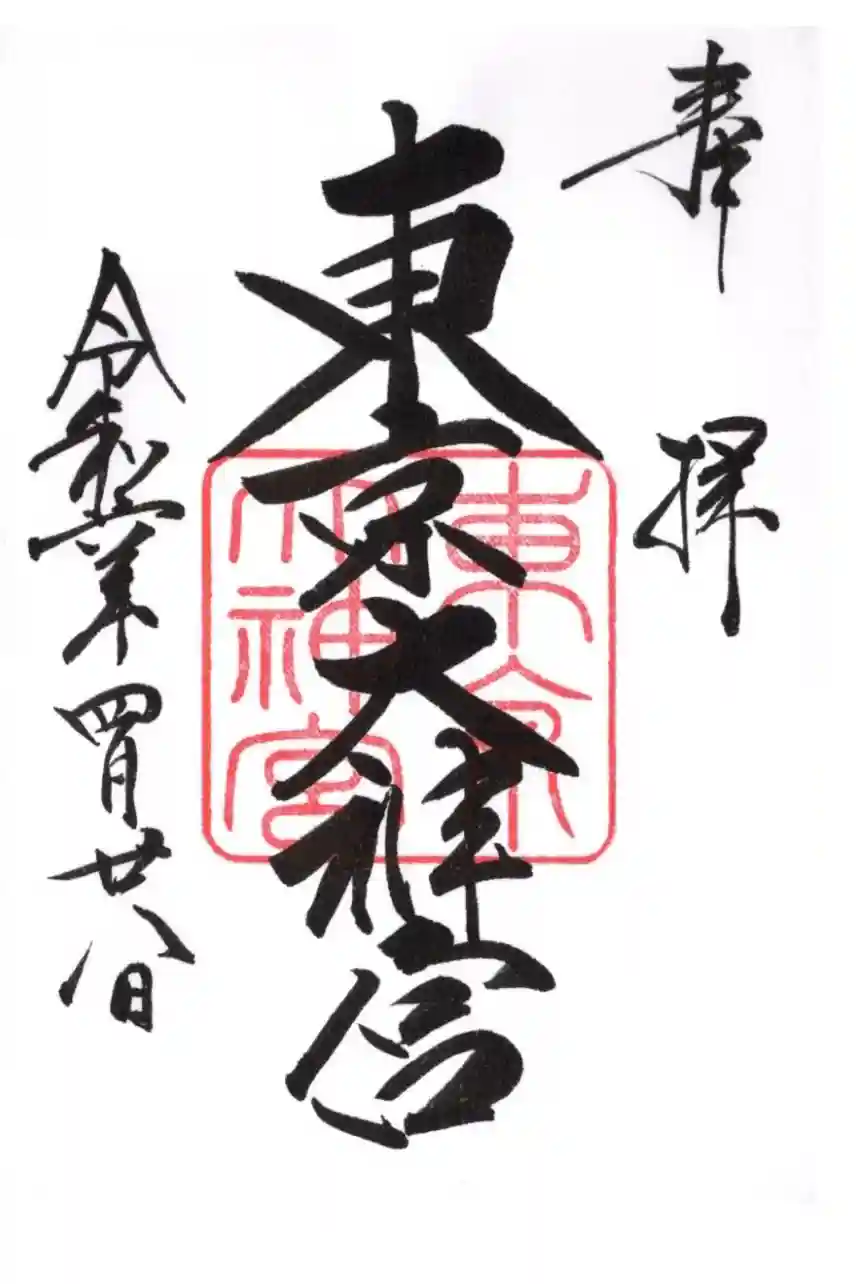 奉拝
東京大神宮
令和六年四月廿八日
東京
大神宮